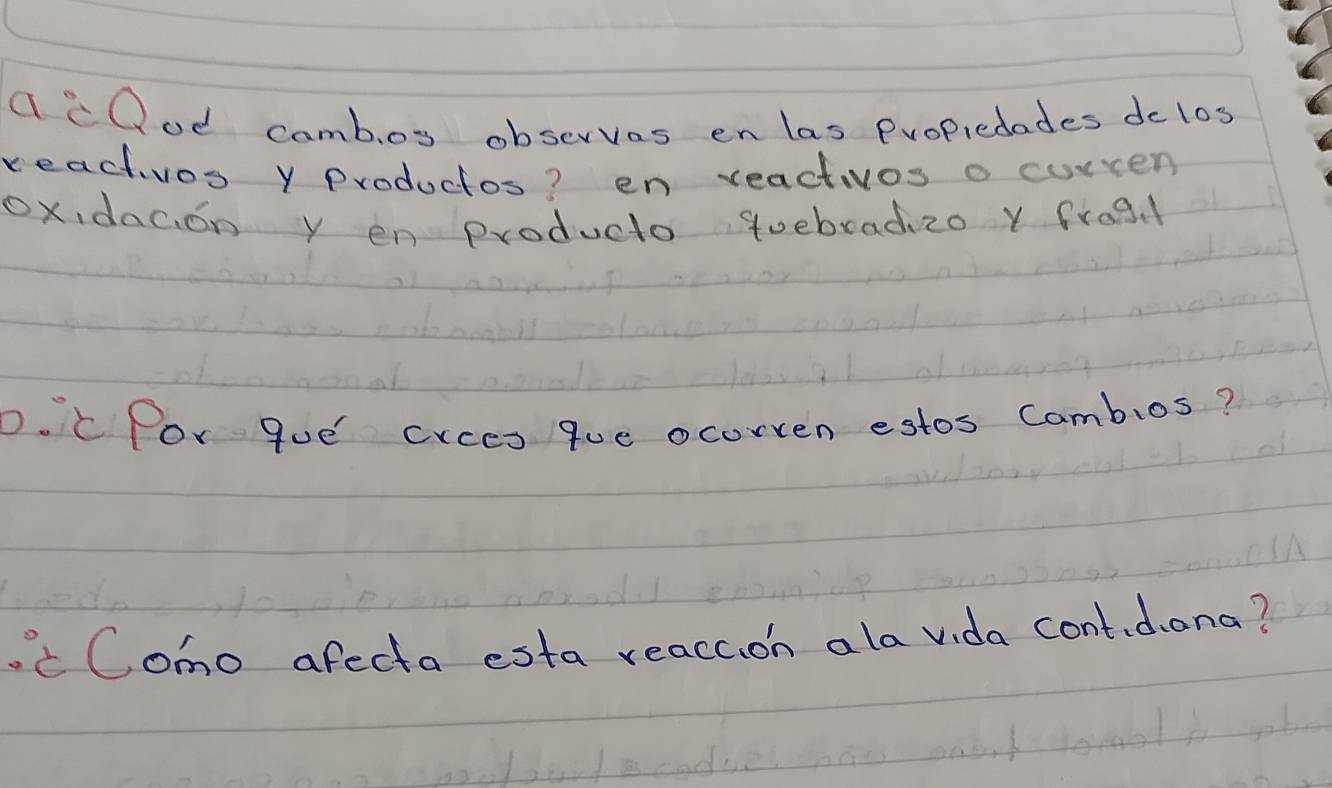 a ¿Qué cambios observas en las propiedades de los
reactivos y productos? en reactivos o curren
oxidación y en producto quebradizo y fragil
b. ¿Por qué crees que ocurren estos cambios?
. ¿Cómo afecta esta reacción ala vida contidiana?